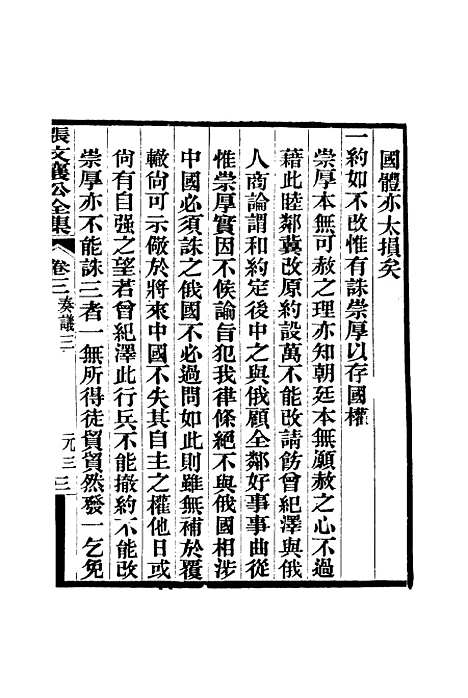 國體亦太損矣
一約如不改惟有誅崇厚以存國權
崇厚本無可赦之理亦知朝廷本無願赦之心不過
藉此睦鄰冀改原約設萬不能改請飭曾紀澤與俄
人商論謂和約定後中之與俄顧全鄰好事事曲從
惟崇厚實因不候諭旨犯我律條絕不與俄國相涉
中國必須誅之俄國不必過問如此則雖無補於覆
轍尚可示儆於將來中國不失其自主之權他日或
尚有自强之望若曾紀澤此行兵不能撤約不能改
崇厚亦不能誅三者一無所得徒貿貿然發一乞免
張文襄公全集
卷三
奏議三
元三
三